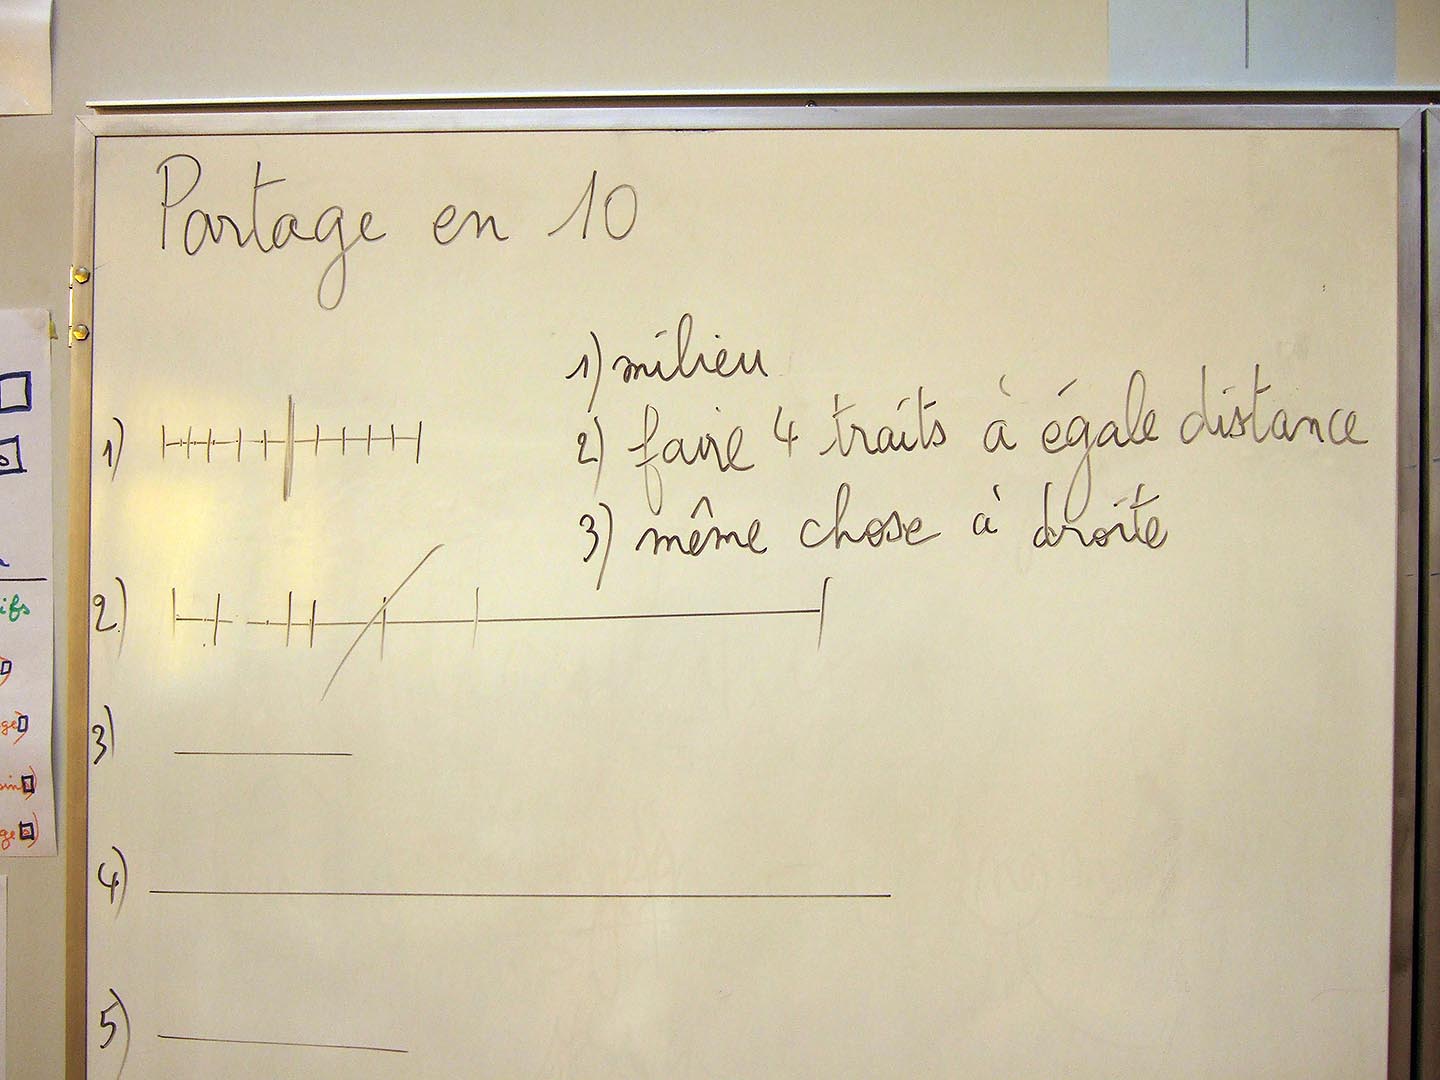 Partage en 10
1) milieu
2) faire 4 traits à égale distance
3) même chose à droite
1)
2)
3)
4)
5)
ifs